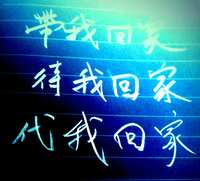 帶我回家
待我回家
代我回家